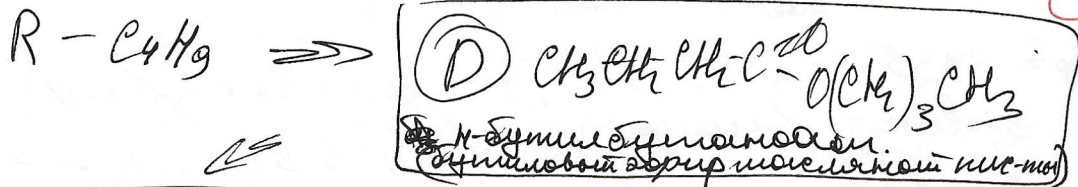 R - C4H9 ⟹ D CH3CH2CH2C=O O(CH2)3CH3
н-бутилбутаноат.
(бутиловый эфир масляной кис-ты)